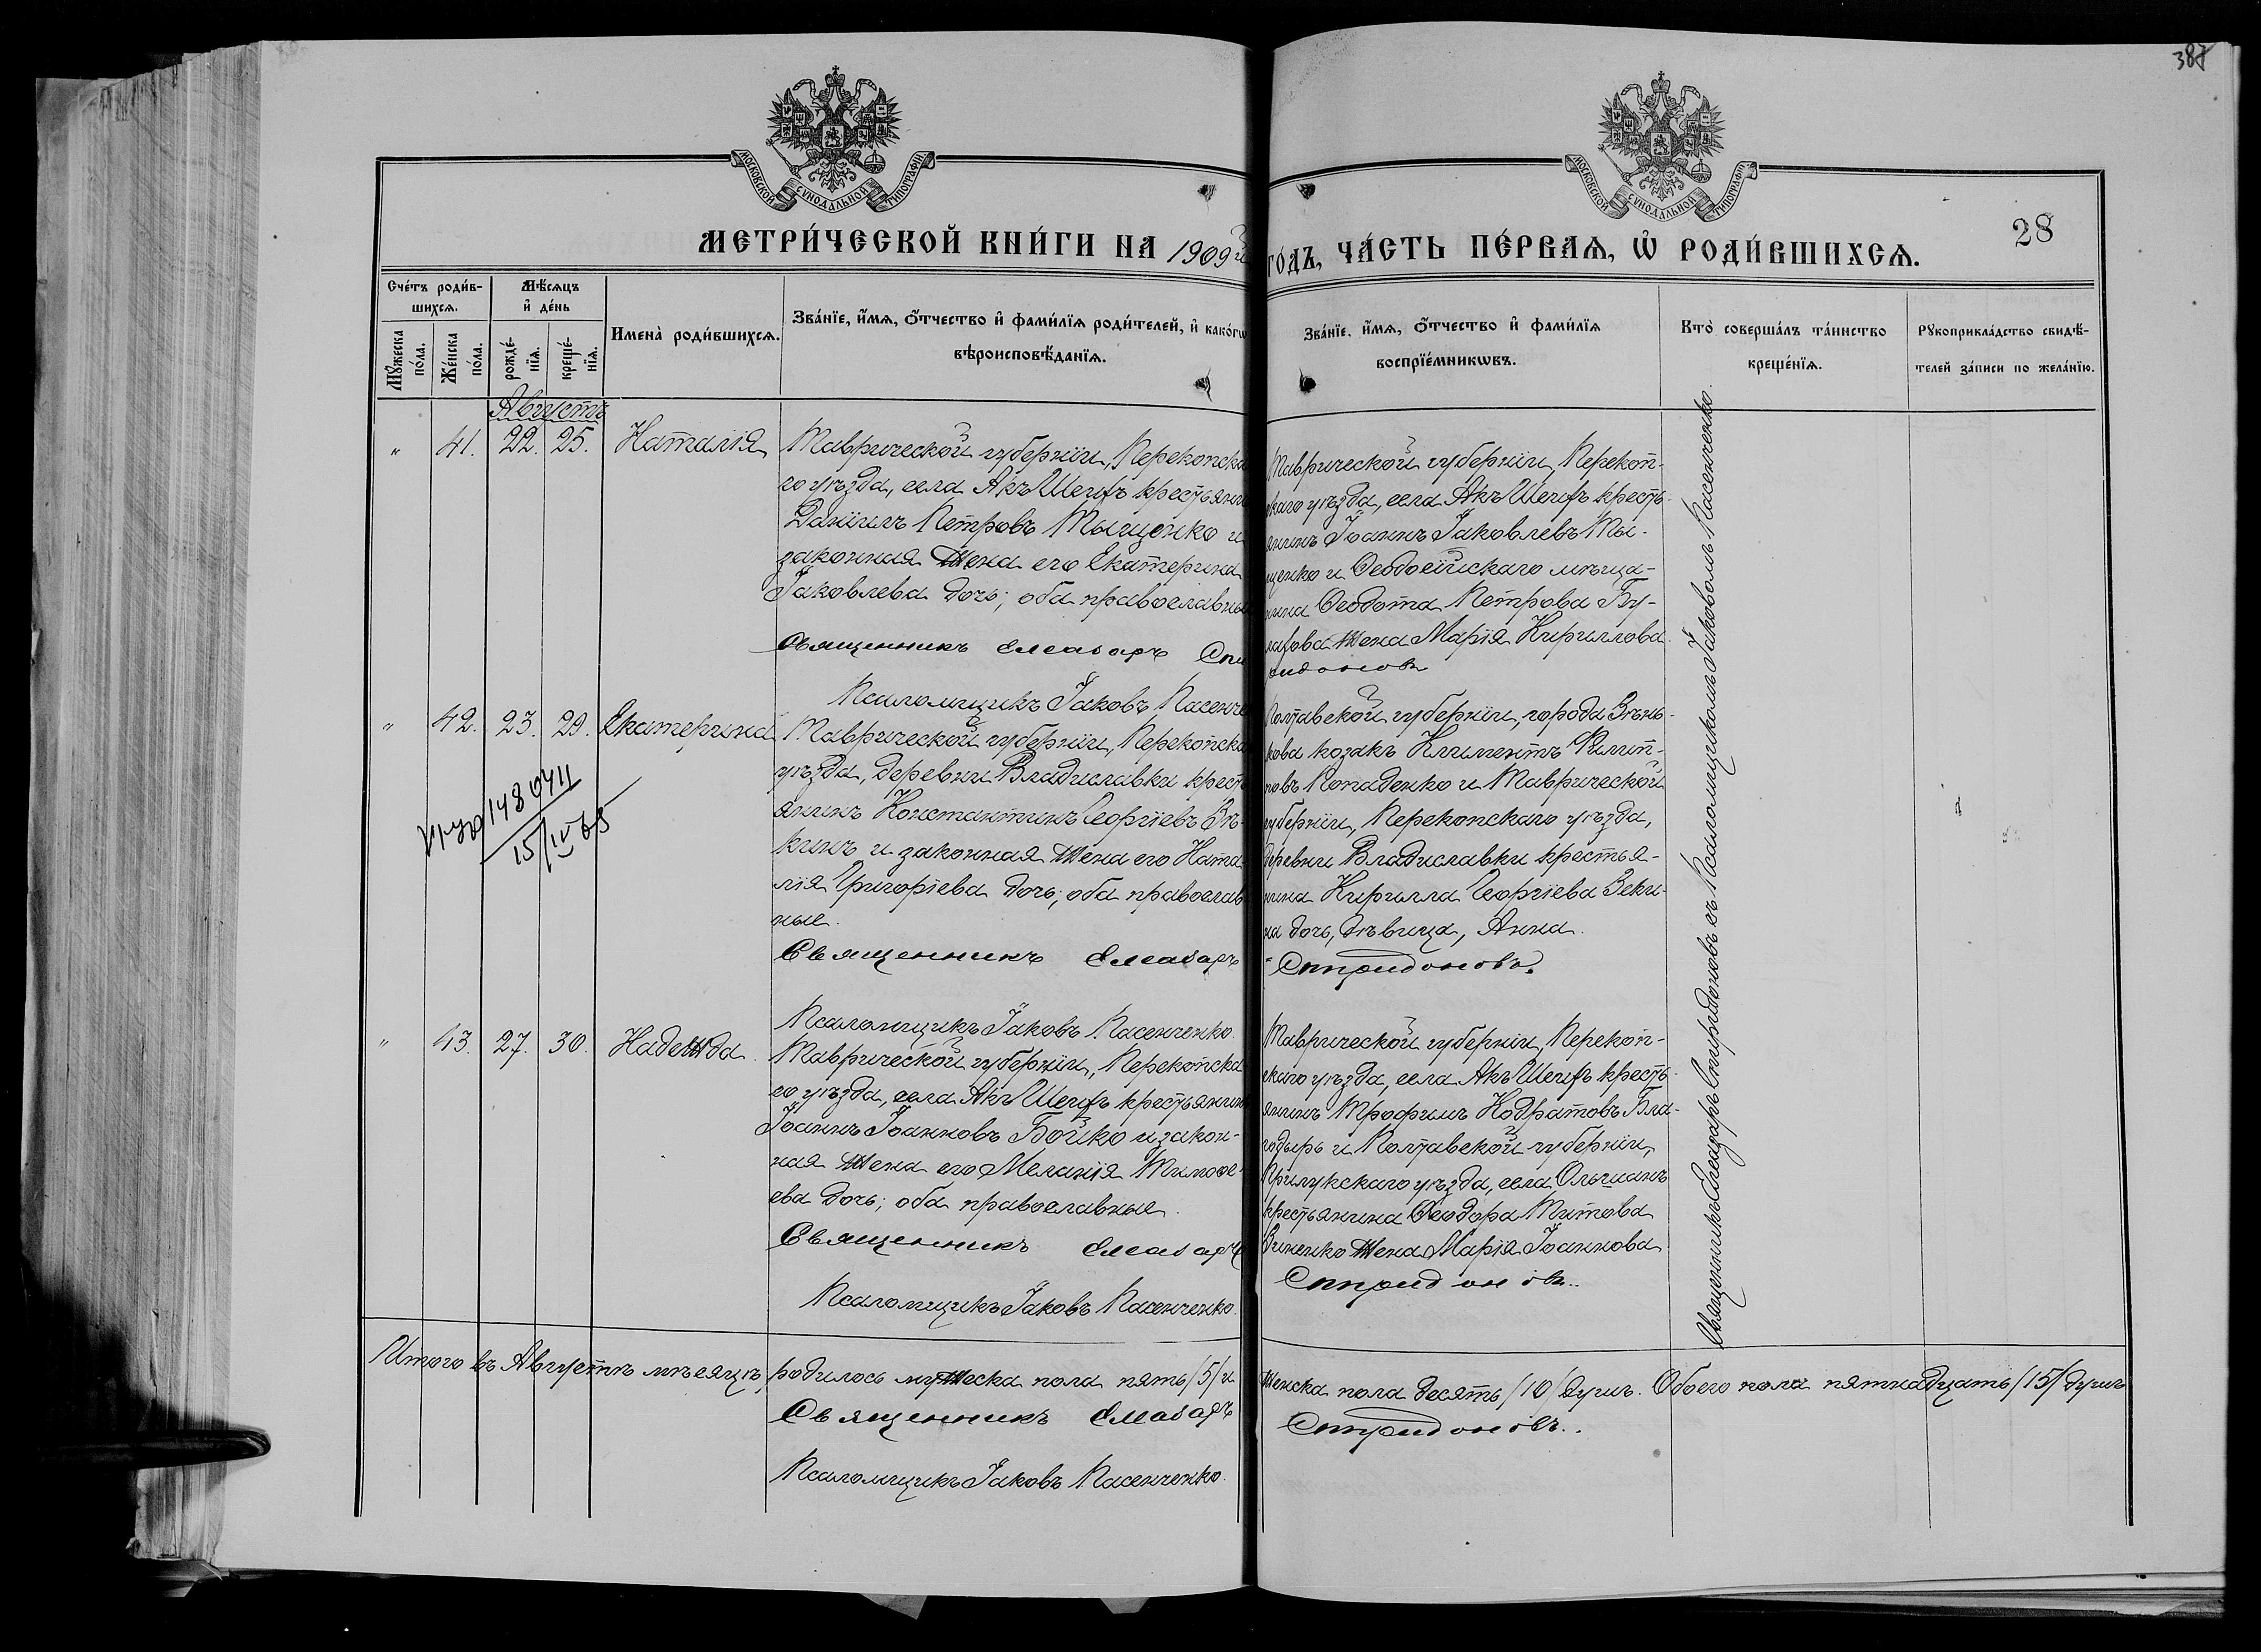 387
МОСКОВСКОЙ СѴНОДАЛЬНОЙ ТИПОГРАФІИ
МОСКОВСКОЙ СѴНОДАЛЬНОЙ ТИПОГРАФІИ
28
МЕТРИ́ЧЕСКОЙ КНИ́ГИ НА 1909й
ГО́ДЪ, ЧА́СТЬ ПЕ́РВАѦ, Ѡ҆ РОДИ́ВШИХСѦ.
Сче́тъ роди́в-
шихсѧ.
Мꙋ́жеска по́ла.
Же́нска по́ла.
Мѣ́сѧцъ
и҆ де́нь
рожде́-
нїѧ.
креще́-
нїѧ.
Имена̀ роди́вшихсѧ.
Зва́нїе, и҆́мѧ, ѻ҆́тчество и҆ фами́лїѧ роди́телей, и҆ како́гѡ
вѣроисповѣ́данїѧ.
Зва́нїе, и҆́мѧ, ѻ҆́тчество и҆ фами́лїѧ
воспрїе́мникѡвъ.
Кто̀ соверша́лъ та́инство
креще́нїѧ.
Рꙋкоприкла́дство свидѣ́-
телей за́писи по жела́нїю.
Августъ
" 41. 22. 25. Наталія
Таврической губерніи, Перекопска
го уѣзда, села Акъ Шеихъ крестьянин
Даніилъ Петровъ Тыщенко и
законная жена его Екатерина
Іаковлева дочь; оба православны
Священникъ Елеазаръ Спи
Псаломщикъ Іаковъ Пасенче
Таврической губерніи, Перекоп-
скаго уѣзда, села Акъ Шеихъ кресть-
янинъ Іоаннъ Іаковлевъ Ты-
щенко и Ѳеодосійскаго мѣща-
нина Ѳеодота Петрова Бу-
жена Марія Кириллова
ридоновъ
" 42. 23. 29. Екатерина
Таврической губерніи, Перекопска
уѣзда, деревни Владиславки крест
янинъ Константинъ Георгіевъ Зѣ-
кинъ и законная жена его Ната
лія Григоріева дочь; оба православ
ные.
Священникъ Елеазаръ
Псаломщикъ Іаковъ Пасенченко.
Полтавской губерніи, города Зѣнь-
кова козакъ Климентъ Филип-
повъ Попаденко и Таврической
губерніи, Перекопскаго уѣзда,
деревни Владиславки крестья-
нина Кирилла Георгіева Зеки-
на дочь, дѣвица, Анна.
Спиридоновъ.
1480711
15/IV 65
" 43. 27. 30. Надежда.
Таврической губерніи, Перекопска
го уѣзда, села Акъ Шеихъ крестьянин
Іоаннъ Іоанновъ Бойко и закон-
ная жена его Меланія Тимоѳе-
ева дочь; оба православные.
Священникъ Елеазаръ
Псаломщикъ Іаковъ Пасенченко.
Таврической губерніи, Перекоп-
скаго уѣзда, села Акъ Шеихъ кресть-
янинъ Трофимъ Кодратовъ Бла-
годырь и Полтавской губерніи,
Прилукскаго уѣзда, села Ольшанъ
крестьянина Ѳеодора Титова
Зиненко жена Марія Іоаннова
Спиридоновъ.
Священникъ Елеазаръ Спиридоновъ съ Псаломщикомъ Іаковомъ Пасенченко.
Итого въ Августѣ мѣсяцѣ, родилось мужеска пола пять /5/ и
женска пола десять /10/ душъ. Обоего пола пятнадцать /15/ душъ
Священникъ Елеазаръ
Спиридоновъ.
Псаломщикъ Іаковъ Пасенченко.